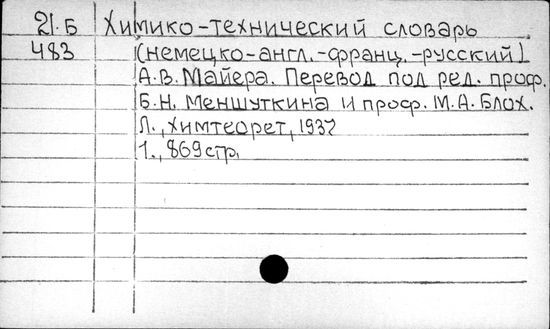 21.Б Химико-технический словарь
483 (немецко-англ.-франц.-русский)
А.В. Майера. Перевод под ред. проф.
Б.Н. Меншуткина и проф. М.А. Блох.
Л., Химтеорет, 1937
1., 869 стр.